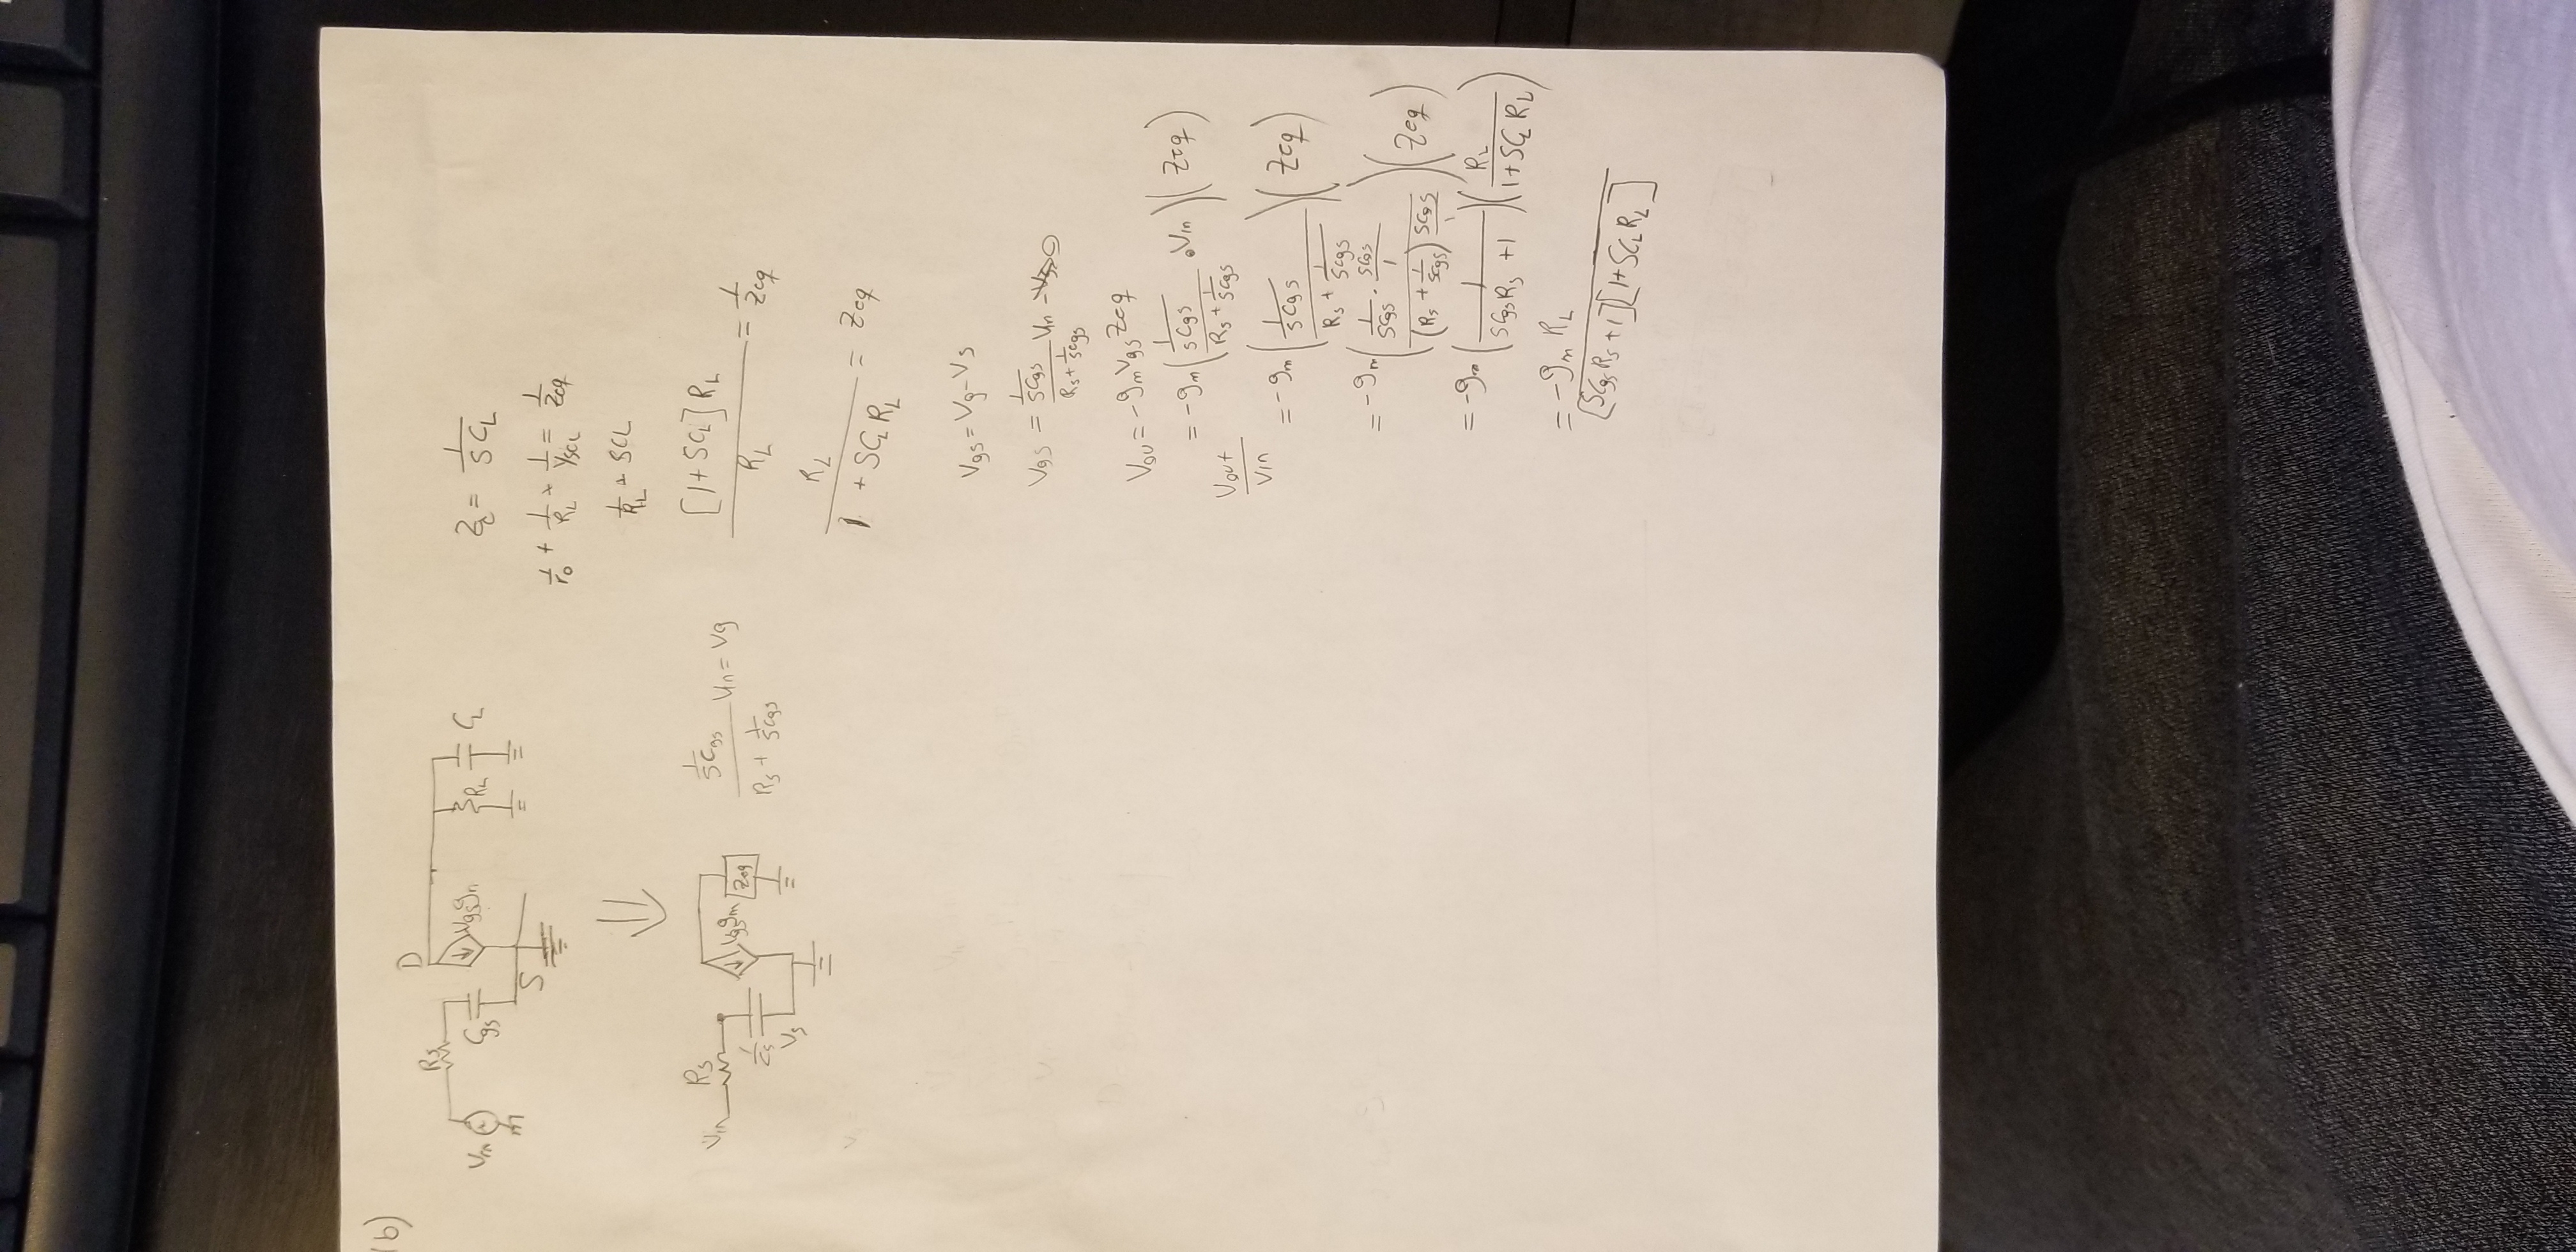 1b)
D
Rs
Vin
Cgs
Vgsgm
RL
CL
S
Rs
Vin
1/Cs
Vs
Vgsgm
Zeq
(1/SCgs)/(Rs + 1/SCgs) Vin = Vg
Zc = 1/SCL
1/ro + 1/RL + 1/(1/SCL) = 1/Zeq
1/RL + SCL
[1 + SCL]RL/RL = 1/Zeq
RL/(1 + SCLRL) = Zeq
Vgs = Vg - Vs
Vgs = (1/SCgs)/(Rs + 1/SCgs) Vin - 0
Vou = -gmVgsZeq
= -gm((1/SCgs)/(Rs + 1/SCgs) · Vin)(Zeq)
Vout/Vin
= -gm((1/SCgs)/(Rs + 1/SCgs))(Zeq)
= -gm((1/SCgs · SCgs/1)/((Rs + 1/SCgs) SCgs/1))(Zeq)
= -gm(1/(SCgsRs + 1))(RL/(1 + SCLRL))
= -gmRL/([SCgsRs + 1][1 + SCLRL])